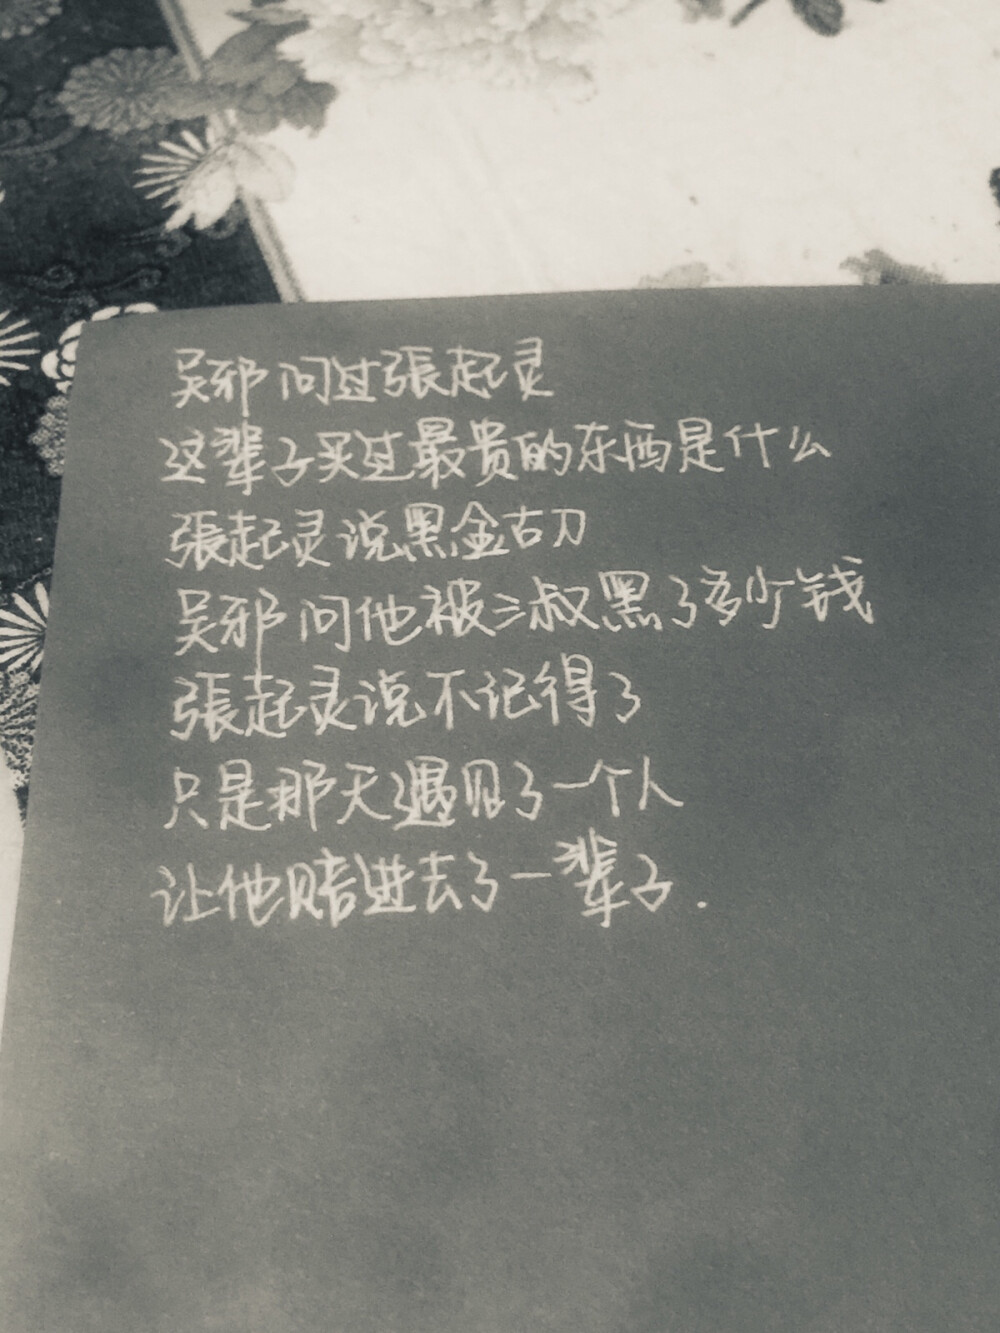 吴邪问过張起灵
这辈子买过最贵的东西是什么
張起灵说黑金古刀
吴邪问他被三叔黑了多少钱
張起灵说不记得了
只是那天遇见了一个人
让他赔进去了一辈子.